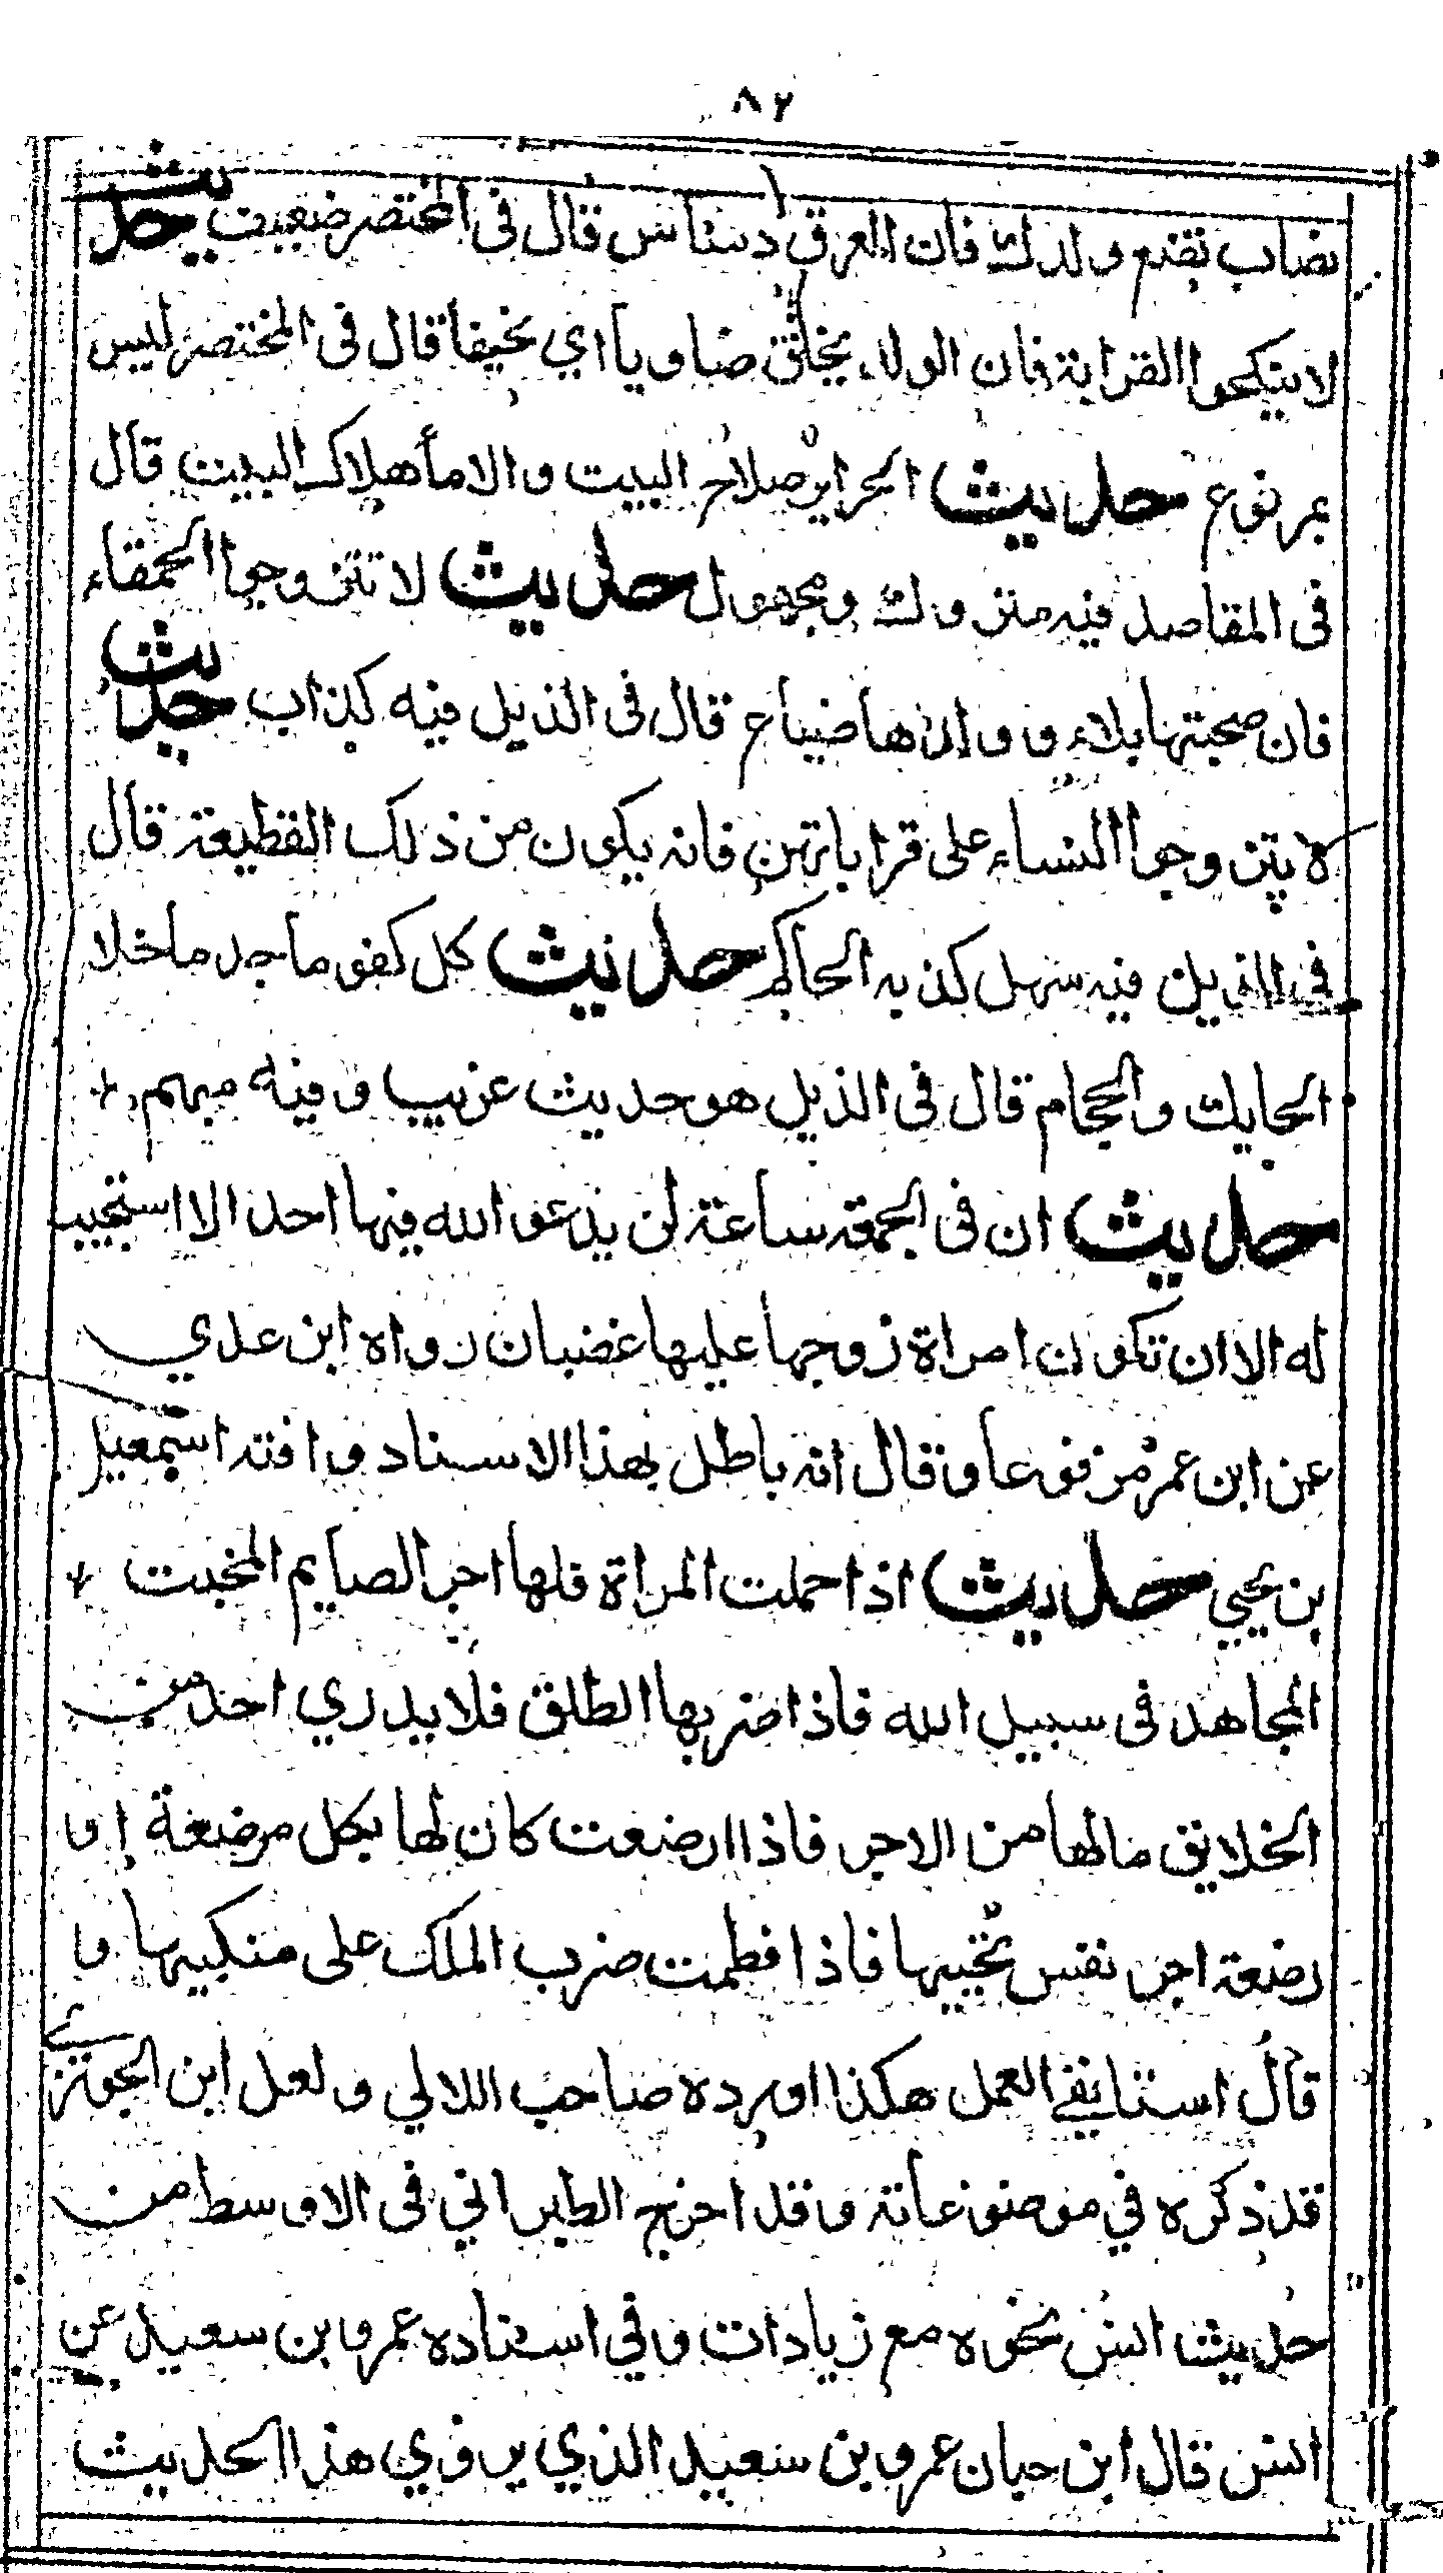 ٨٢
نصاب تقنع ولدك فان العرق دساس قال في المختصر ضعيف حديث
لا ينكحوا القرابة فان الولد يخلق ضاويا اي نحيفا قال في المختصر ليس
بمرفوع حديث الحراير صلاح البيت والاماء هلاك البيت قال
في المقاصد فيه متروك ومجهول حديث لا تتزوجوا الحمقاء
فان صحبتها بلاء و ولدها ضياع قال في الذيل فيه كذاب حديث
لا يتزوجوا النساء على قراباتهن فانه يكون من ذلك القطيعة قال
في الذيل فيه سهل كذبه الحاكم حديث كل كفو ماجد ما خلا
الحايك والحجام قال في الذيل هو حديث غريب وفيه مبهم
حديث ان في الجمعة ساعة لن يدعو الله فيها احد الا استجيب
له الا ان تكون امراة زوجها عليها غضبان رواه ابن عدي
عن ابن عمر مرفوعا وقال انه باطل بهذا الاسناد وافته اسمعيل
بن يحيي حديث اذا حملت المراة فلها اجر الصايم المخبت
المجاهد في سبيل الله فاذا ضربها الطلق فلا يدري احد من
الخلايق ما لها من الاجر فاذا ارضعت كان لها بكل مرضعة او
رضعة اجر نفس تحييها فاذا فطمت ضرب الملك على منكبيها و
قال استانفي العمل هكذا اورده صاحب اللالي ولعل ابن الجوزي
قد ذكره في موضوعاته وقد اخرج الطبراني في الاوسط من
حديث انس نحوه مع زيادات وفي اسناده عمرو بن سعيد عن
انس قال ابن حبان عمرو بن سعيد الذي يروي هذا الحديث